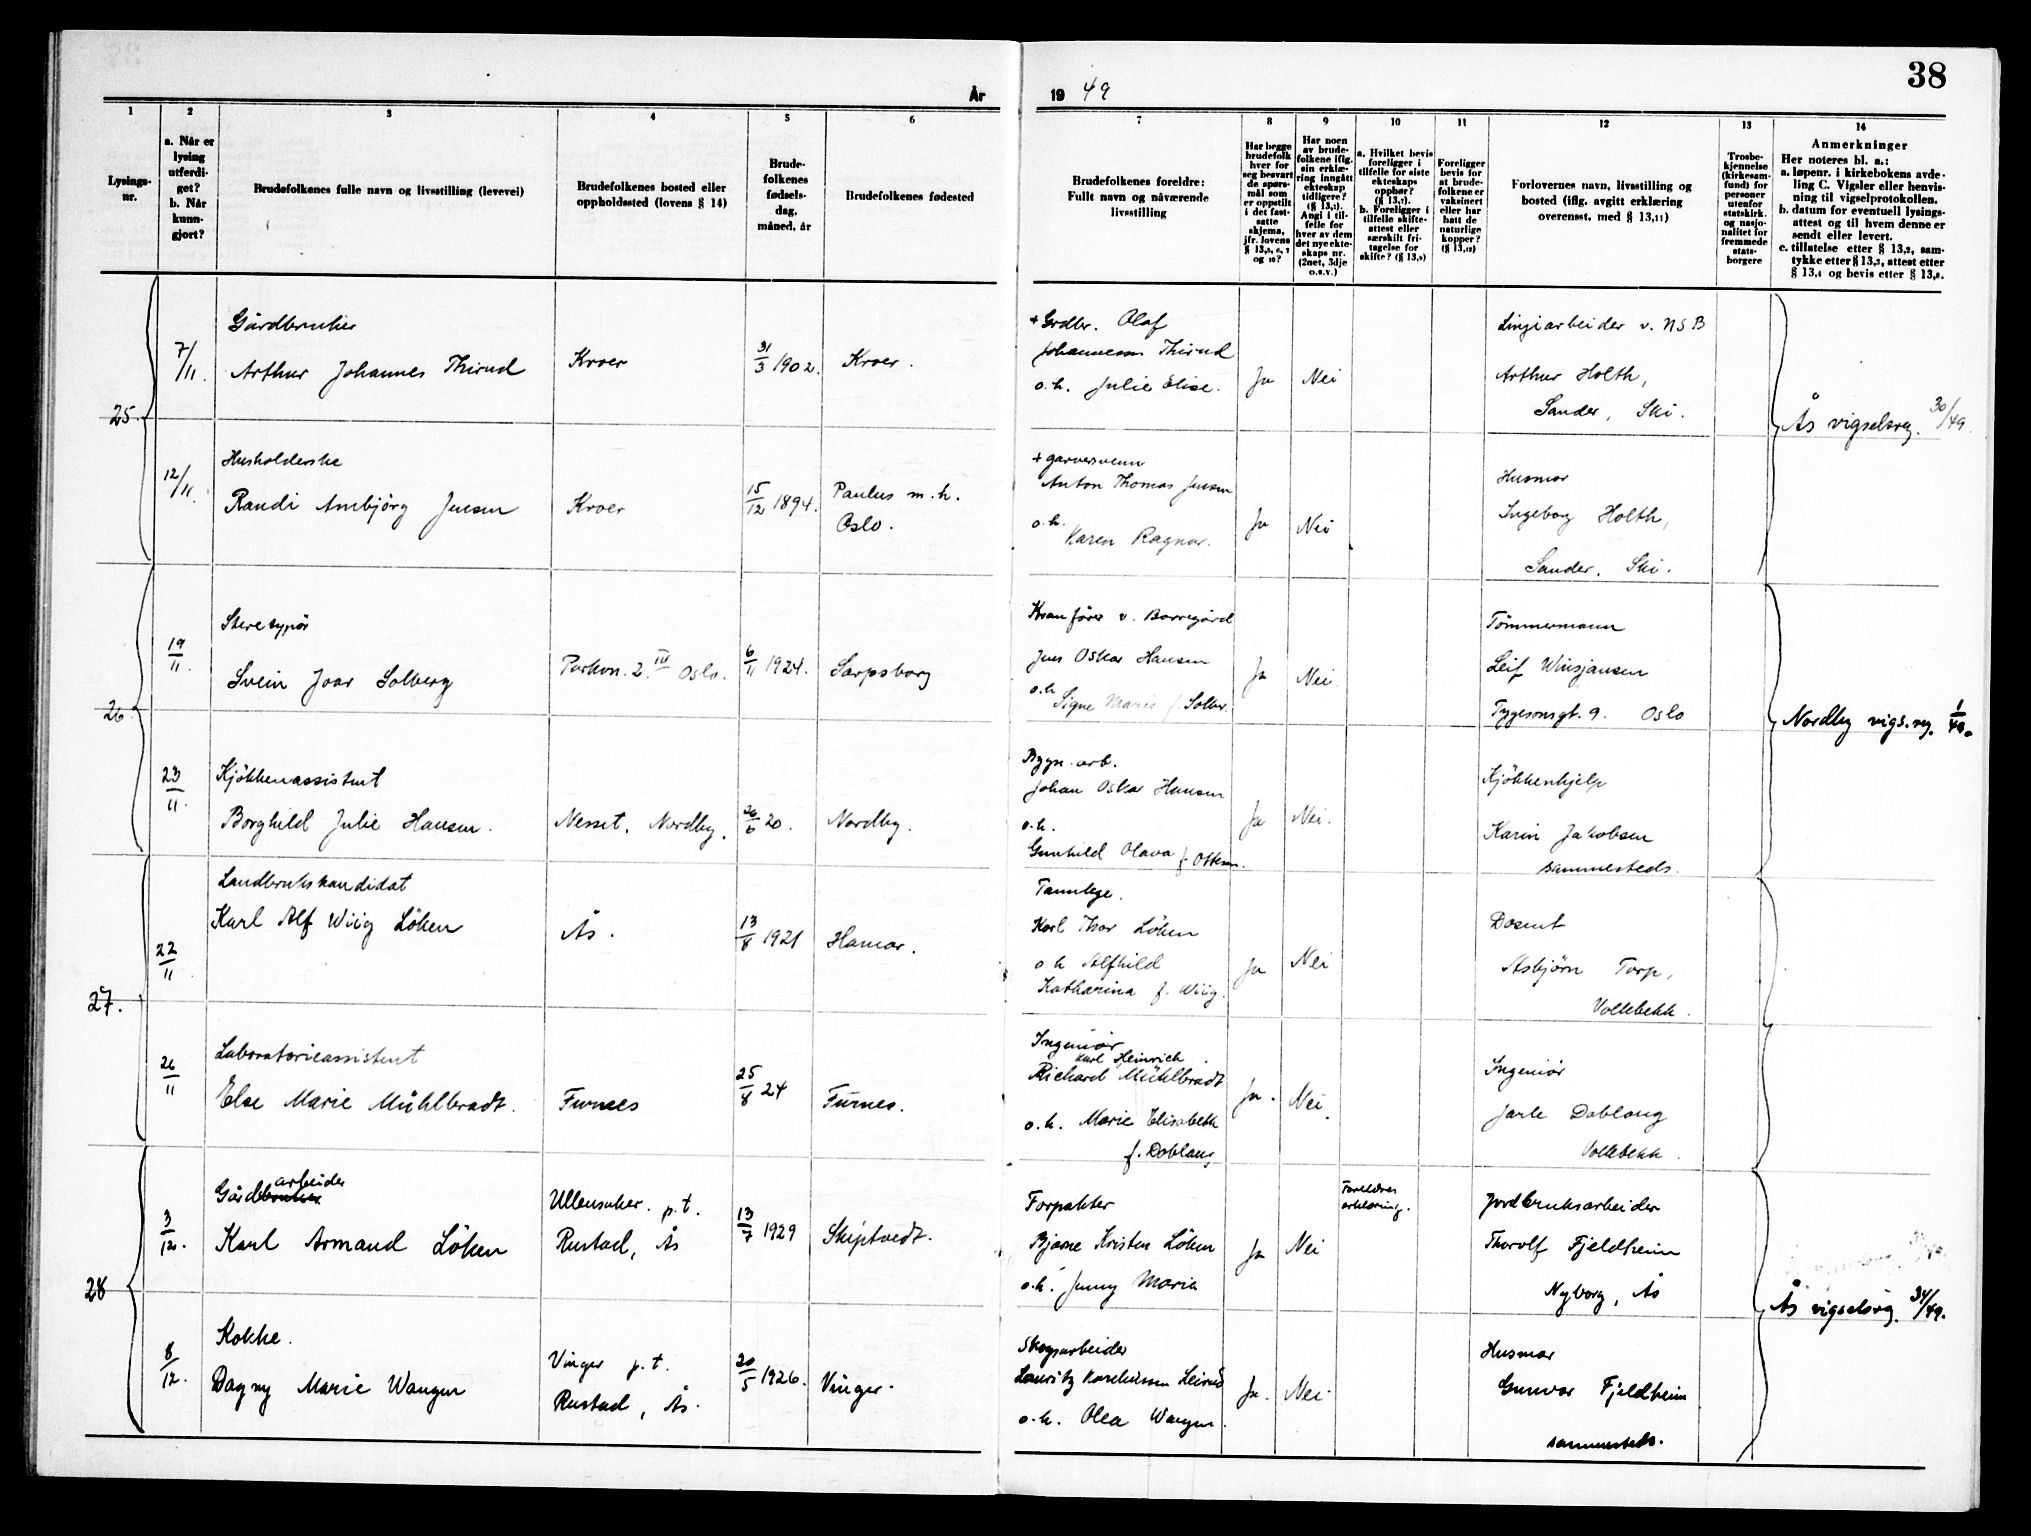 38
År
19 49
1
2
3
4
5
6
7
8
9
10
11
12
13
14
Lysings-
nr.
a. Når er
lysing
utferdi-
get?
b. Når
kunn-
gjort?
Brudefolkenes fulle navn og livsstilling (levevei)
Brudefolkenes bosted eller
oppholdssted (lovens § 14)
Brude-
folkenes
fødsels-
dag,
måned, år
Brudefolkenes fødested
Brudefolkenes foreldre:
Fullt navn og nåværende
livsstilling
Har begge
brudefolk
hver for
seg besvart
de spørs-
mål som
er oppstilt
i det fast-
satte
skjema,
jfr. lovens
§ 13,5, 6, 7
og 10?
Har noen
av brude-
folkene iflg.
sin erklæ-
ring inngått
ekteskap
tidligere?
(§ 13,7).
Angi i til-
felle for
hver av dem
det nye ekte-
skaps nr.
(2net, 3dje
o.s.v.)
a. Hvilket bevis
foreligger i
tilfelle for siste
ekteskaps
opphør?
(§ 13,7).
b. Foreligger i
tilfelle skifte-
attest eller
særskilt fri-
tagelse for
skifte? (§ 13,9)
Foreligger
bevis for
at brude-
folkene er
vaksinert
eller har
hatt de
naturlige
kopper?
(§ 13,12)
Forlovernes navn, livsstilling og
bosted (iflg. avgitt erklæring
overensst. med § 13,11)
Trosbe-
kjennelse
(kirkesam-
fund) for
personer
utenfor
statskirk.
og nasjo-
nalitet for
fremmede
stats-
borgere
Anmerkninger
Her noteres bl. a.:
a. løpenr. i kirkebokens avde-
ling C. Vigsler eller henvis-
ning til vigselprotokollen.
b. datum for eventuell lysings-
attest og til hvem denne er
sendt eller levert.
c. tillatelse etter § 13,2, sam-
tykke etter § 13,3, attest etter
§ 13,4 og bevis etter § 13,8.
25.
7/11.
Gårdbruker
Arthur Johannes Thirud
Kroer
31/3 1902.
Kroer.
+ Grdbr. Olaf
Johannessen Thirud
o.h. Julie Elise.
Ja
Nei
Linjearbeider v. NSB
Arthur Holth,
Sander, Ski.
Ås vigselsreg. 30/49.
12/11.
Husholderske
Randi Ambjörg Jensen
Kroer
15/12 1894.
Paulus m.h.
Oslo.
+ garversvenn
Anton Thomas Jensen
o.h.
Karen Ragna.
Ja
Nei
Husmor
Ingeborg Holth,
Sander, Ski.
26.
19/11.
Stereotypör
Svein Joar Solberg
Parkvn. 2 IV Oslo.
6/11 1924.
Sarpsborg
Kranförer v. Borregård
Jens Oskar Hansen
o.h
Signe Marie f. Solber.
Ja
Nei
Tömmermann
Leif Winsjansen
Tygesonsgt. 9. Oslo
Nordby vigs.reg. 1/49.
23/11.
Kjökkenassistent
Borghild Julie Hansen.
Nesset, Nordby.
26/6 20.
Nordby.
Bygn. arb.
Johan Oskar Hansen
o.h.
Gunhild Olava f. Ottesen.
Ja
Nei.
Kjökkenhjelp
Karin Jakobsen
sammesteds.
27.
22/11
Landbrukskandidat
Karl Alf Wiig Löken
Ås.
13/8 1921
Hamar.
Tannlege.
Karl Thor Löken
o h Alfhild
Katharina f. Wiig.
Ja
Nei
Dosent
Asbjörn Torp,
Vollebekk.
26/11
Laboratorieassistent
Else Marie Mühlbradt.
Furnes
25/8 24
Furnes.
Ingeniör
Karl Heinrich
Richard Mühlbradt
o.h. Marie Elisabeth
f. Doblaug
Ja.
Nei.
Ingeniör
Jarle Doblaug
Vollebekk.
28
3/12.
arbeider
Gårdbruker
Karl Armand Löken
Ullensaker. p.t.
Rustad, Ås
13/7 1929
Skiptvedt.
Forpakter
Bjarne Kristen Löken
o.h. Jenny Maria
Ja
Nei
Foreldres
erklæring.
Jordbruksarbeider
Thorolf Fjeldheim
Nyborg, Ås
Ås vigselsreg. 34/49.
8/12.
Kokke.
Dagny Marie Wangen
Vinger p.t.
Rustad, Ås.
20/5 1926.
Vinger.
Skogsarbeider
Lauritz Leirud
o.h. Olea Wangen.
Ja.
Nei.
Husmor
Gunvor Fjeldheim
sammesteds.